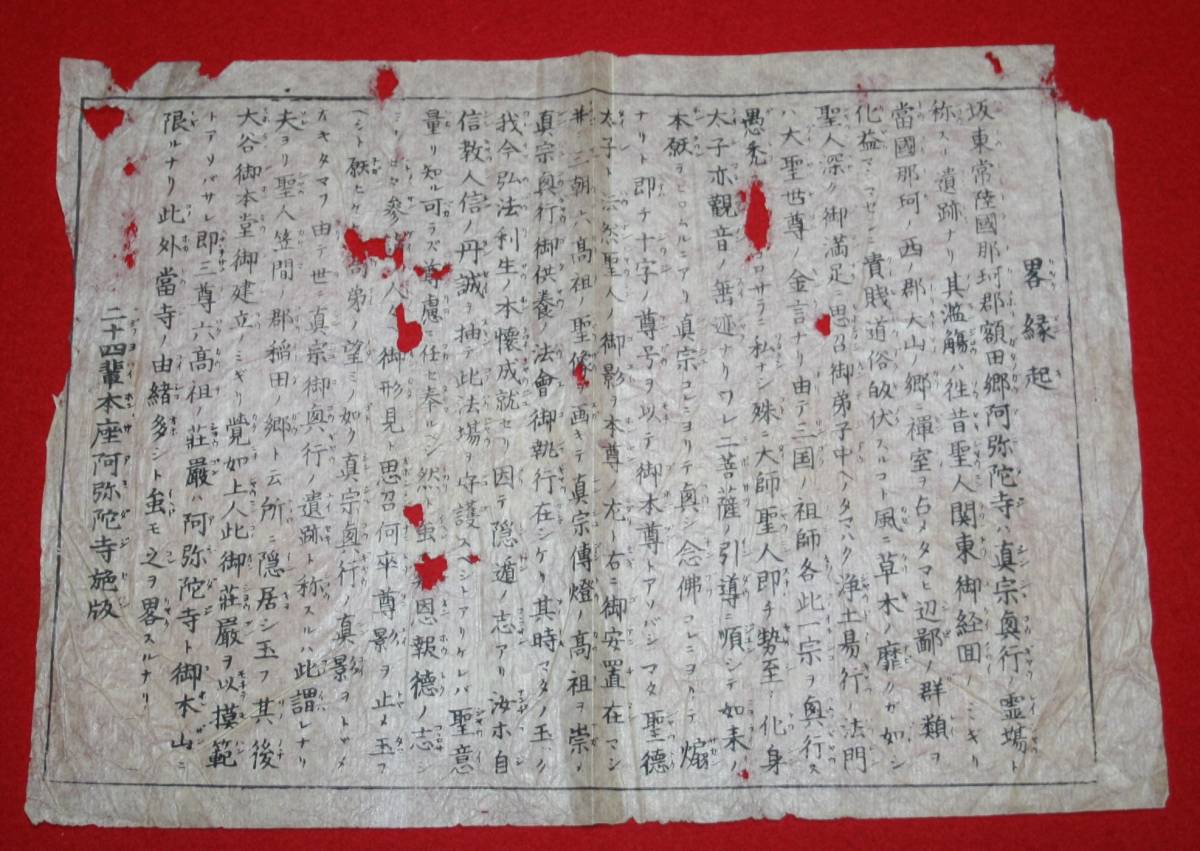 畧縁起
坂東常陸國那珂郡額田郷阿弥陀寺ハ真宗興行ノ霊場ト
称スル遺跡ナリ其濫觴ハ徃昔聖人関東御経回ノミキリ
當國那珂ノ西ノ郡大山ノ郷ニ禪室ヲ占メタマヒ辺鄙ノ群類ヲ
化益マシマセシニ貴賤道俗皈伏スルコト風ニ草木ノ靡クガ如シ
聖人深ク御満足ニ思召御弟子中ヘタマハク浄土易行ノ法門
ハ大聖世尊ノ金言ナリ由テ三国ノ祖師各此一宗ヲ興行ス
愚禿 サラニ私ナシ殊ニ大師聖人即チ勢至ノ化身
太子亦觀音ノ垂迹ナリワレ二菩薩ノ引導ニ順シテ如来ノ
本願ヲヒロムルニアリ真宗コレニヨリテ興シ念佛コレニヨリテ煽
ナリト即チ十字ノ尊号ヲ以テ御本尊トアソバシマタ聖德
太子ト 然聖人ノ御影ヲ本尊ノ左右ニ御安置在マシ
并ニ三朝六高祖ノ聖像ヲ画キテ真宗傳燈ノ高祖ヲ崇メ
真宗興行御供養ノ法會御執行在シケリ其時マタノ玉ハク
我今弘法利生ノ本懷成就セリ因テ隠遁ノ志アリ汝ホ自
信教人信ノ丹誠ヲ抽デ此法場ヲ守護スベシトアリケレバ聖意
量リ知ル可ラズ尊慮ニ任セ奉ルベシ然ト雖 恩報德ノ志シ
参 ノ人々御形見ト思召何卒尊影ヲ止メ玉フ
ベシト願ヒケ 弟ノ望ミノ如ク真宗興行ノ真影ヲトヾメ
オキタマフ由テ世ニ真宗御興行ノ遺跡ト称スルハ此謂レナリ
夫ヨリ聖人笠間ノ郡稲田ノ郷ト云所ニ隠居シ玉フ其後
大谷御本堂御建立ノミギリ覚如上人此御荘厳ヲ以摸範
トアソバサレ即三尊六高祖ノ荘嚴ハ阿弥陀寺ト御本山ニ
限ルナリ此外當寺ノ由緒多シト虽モ之ヲ畧スルナリ
二十四輩本座阿弥陀寺施版